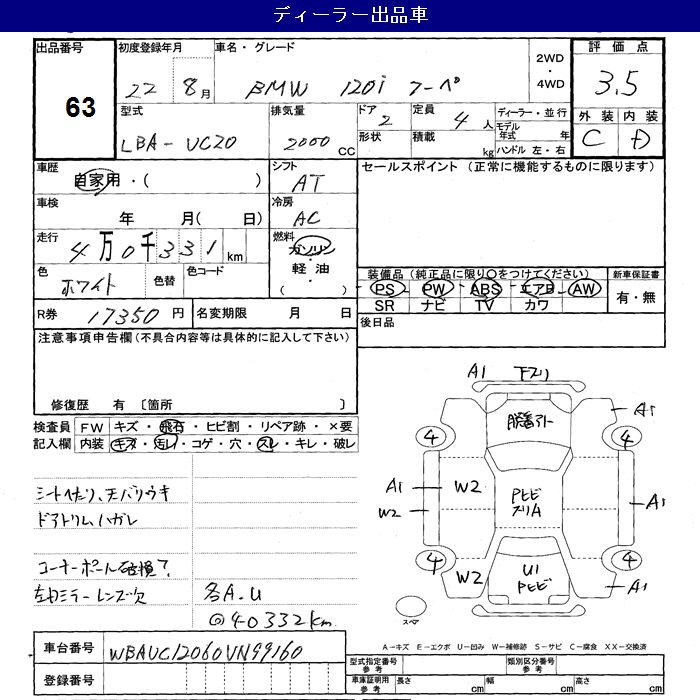 ディーラー出品車
出品番号
63
初度登録年月
22 8月
車名・グレード
BMW 120i クーペ
2WD
・
4WD
評価点
3.5
外装 内装
C D
型式
LBA-UC20
排気量
2000 CC
ドア 2
形状
定員 4人
積載 kg
ディーラー・並行
モデル年式 年
ハンドル 左・右
車歴
自家用・( )
シフト
AT
セールスポイント (正常に機能するものに限ります)
車検
年 月( 日)
冷房
AC
走行
4万0千331km
燃料
ガソリン
・
軽・油
・
( )
色
ホワイト
色替
色コード
装備品(純正品に限り○をつけてください)
PS PW ABS エアB AW
SR ナビ TV カワ
新車保証書
有・無
R券 17350 円
名変期限 月 日
後日品
注意事項申告欄(不具合内容等は具体的に記入して下さい)
修復歴 有 〔箇所 〕
検査員
記入欄
FW キズ・飛石・ヒビ割・リペア跡・×要
内装 キズ・汚レ・コゲ・穴・スレ・キレ・破レ
シートヘタリ、天バリウキ
ドアトリムハガレ
コーナーポール破損?
左右ミラーレンズ欠
各A.U
@40332km
A1 下スリ
A1
4 4
A1 W2
W2
PヒビスリA
A1
4 4
W2
U1
Pヒビ
A1
スペア
A-キズ E-エクボ U-凹み W-補修跡 S-サビ C-腐食 XX-交換済
車台番号 WBAUC12060VN99160
登録番号
型式指定番号
参考
類別区分番号
参考
車庫証明用
参考
長さ cm 幅 cm 高さ cm